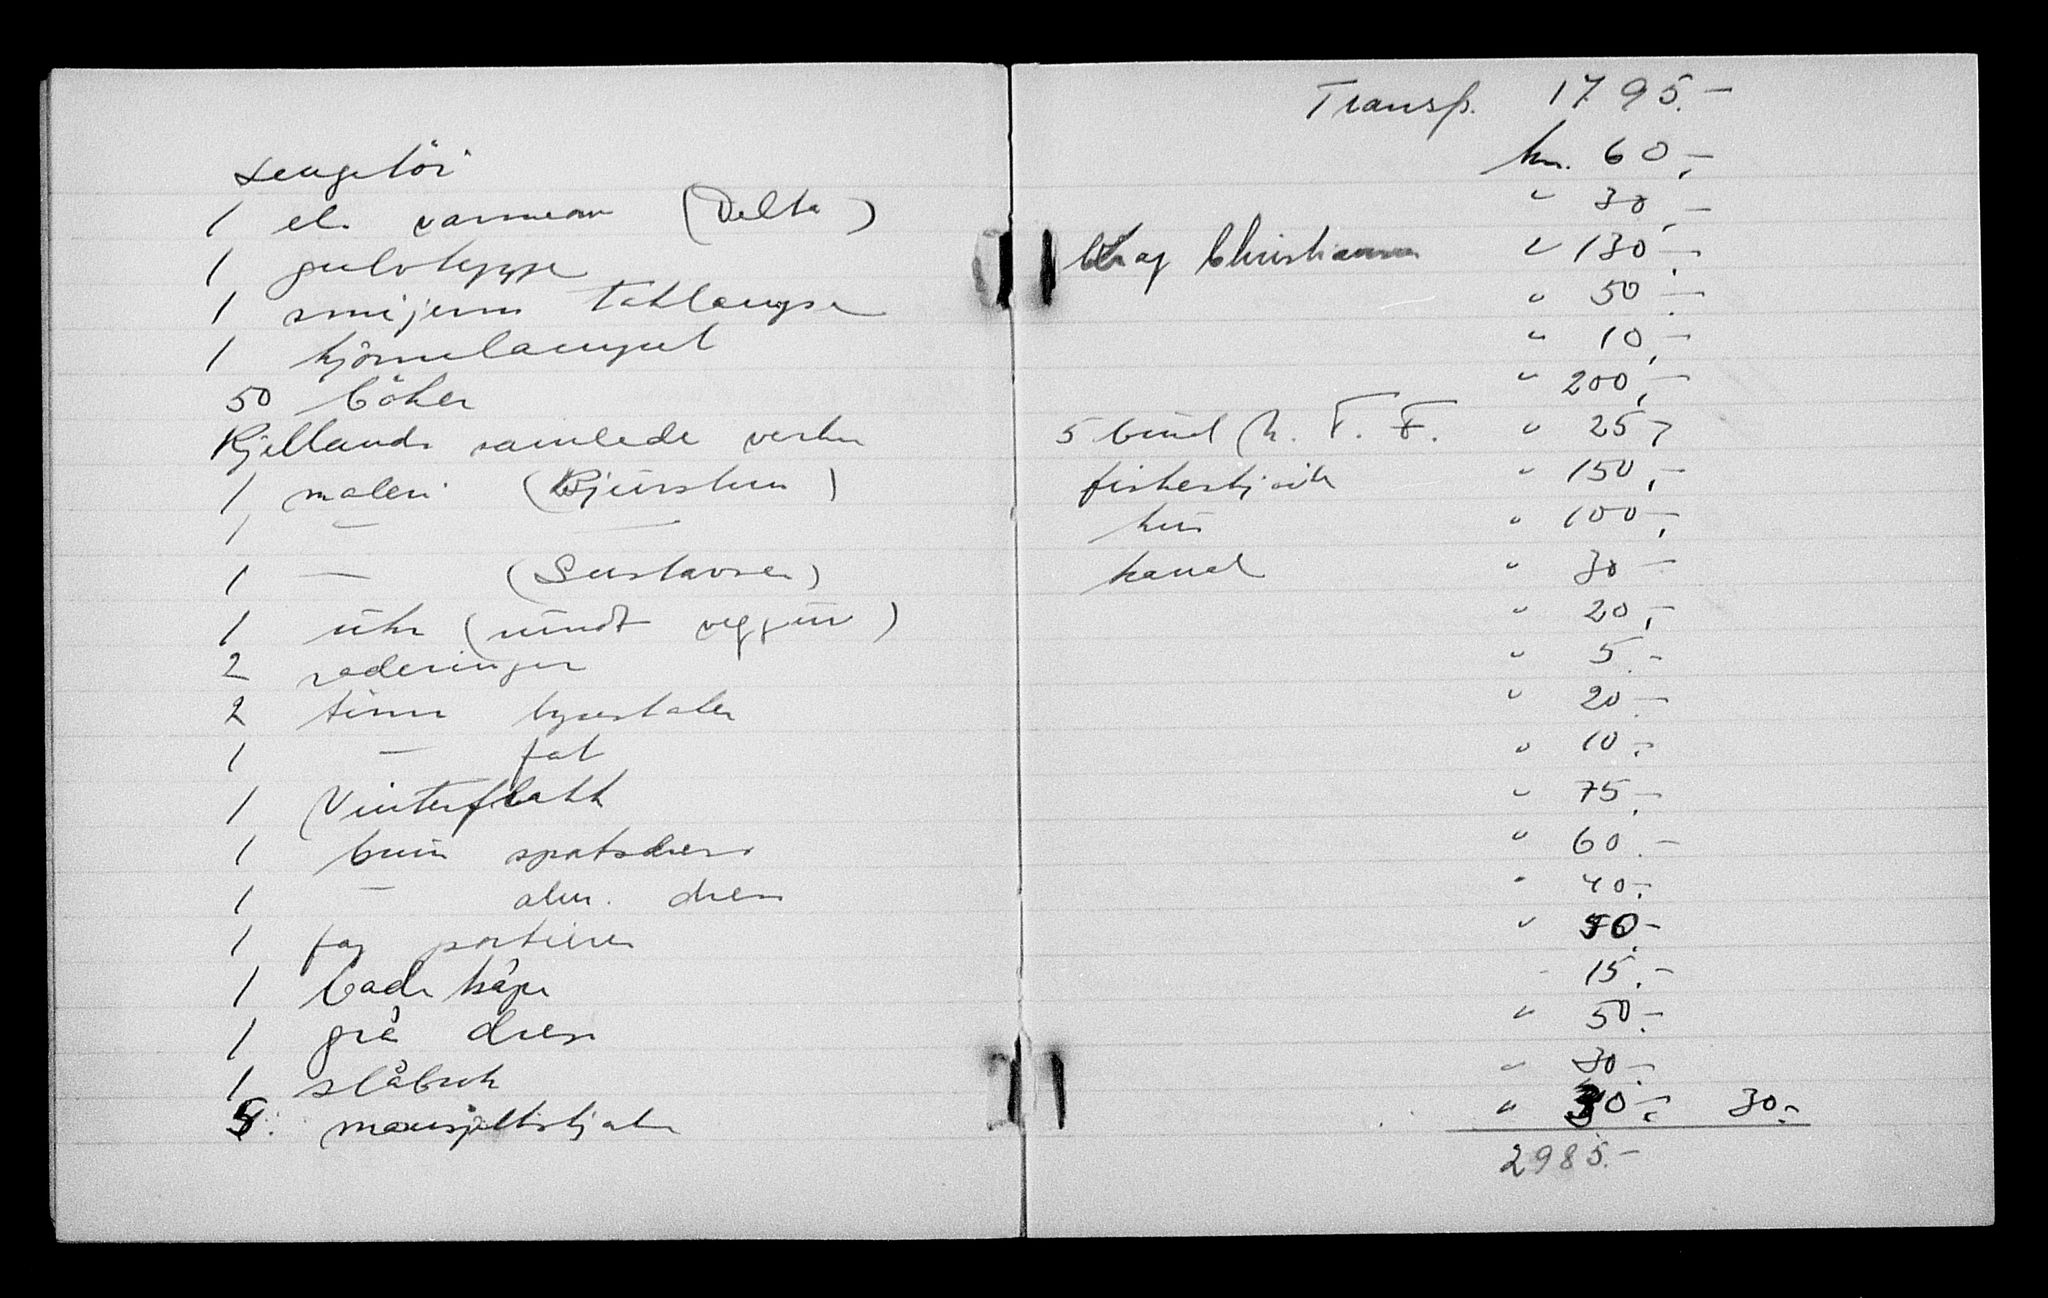 Transp. 1795.-
Sengetöi kr. 60,-
1 el. varmeovn (Delta) " 30,-
1 gulvteppe Olaf Christiansen " 130,-
1 smijerns taklampe " 50,-
1 hjörnelampet " 10,-
50 böker " 200,-
Kjellands samlede verker 5 bind h. F. F. " 25,-
1 maleri (Bjurstrøm) fiskeskjøite " 150,-
1 — — hus " 100,-
1 — (Gustavsen) kanal " 30 -
1 ühr (rundt veggur) " 20,-
2 raderinger " 5.-
2 tinn lysestaker " 20.-
1 — fat " 10.-
1 Vinterfrakk " 75.-
1 brun sportsdress " 60.-
1 — alm. dress " 40.-
1 fag portierer " 50.-
1 badekåpe - 15.-
1 grå dress " 50.-
1 slåbrok " 30.-
5 mansjettskjorter " 30.- 30.-
2985.-